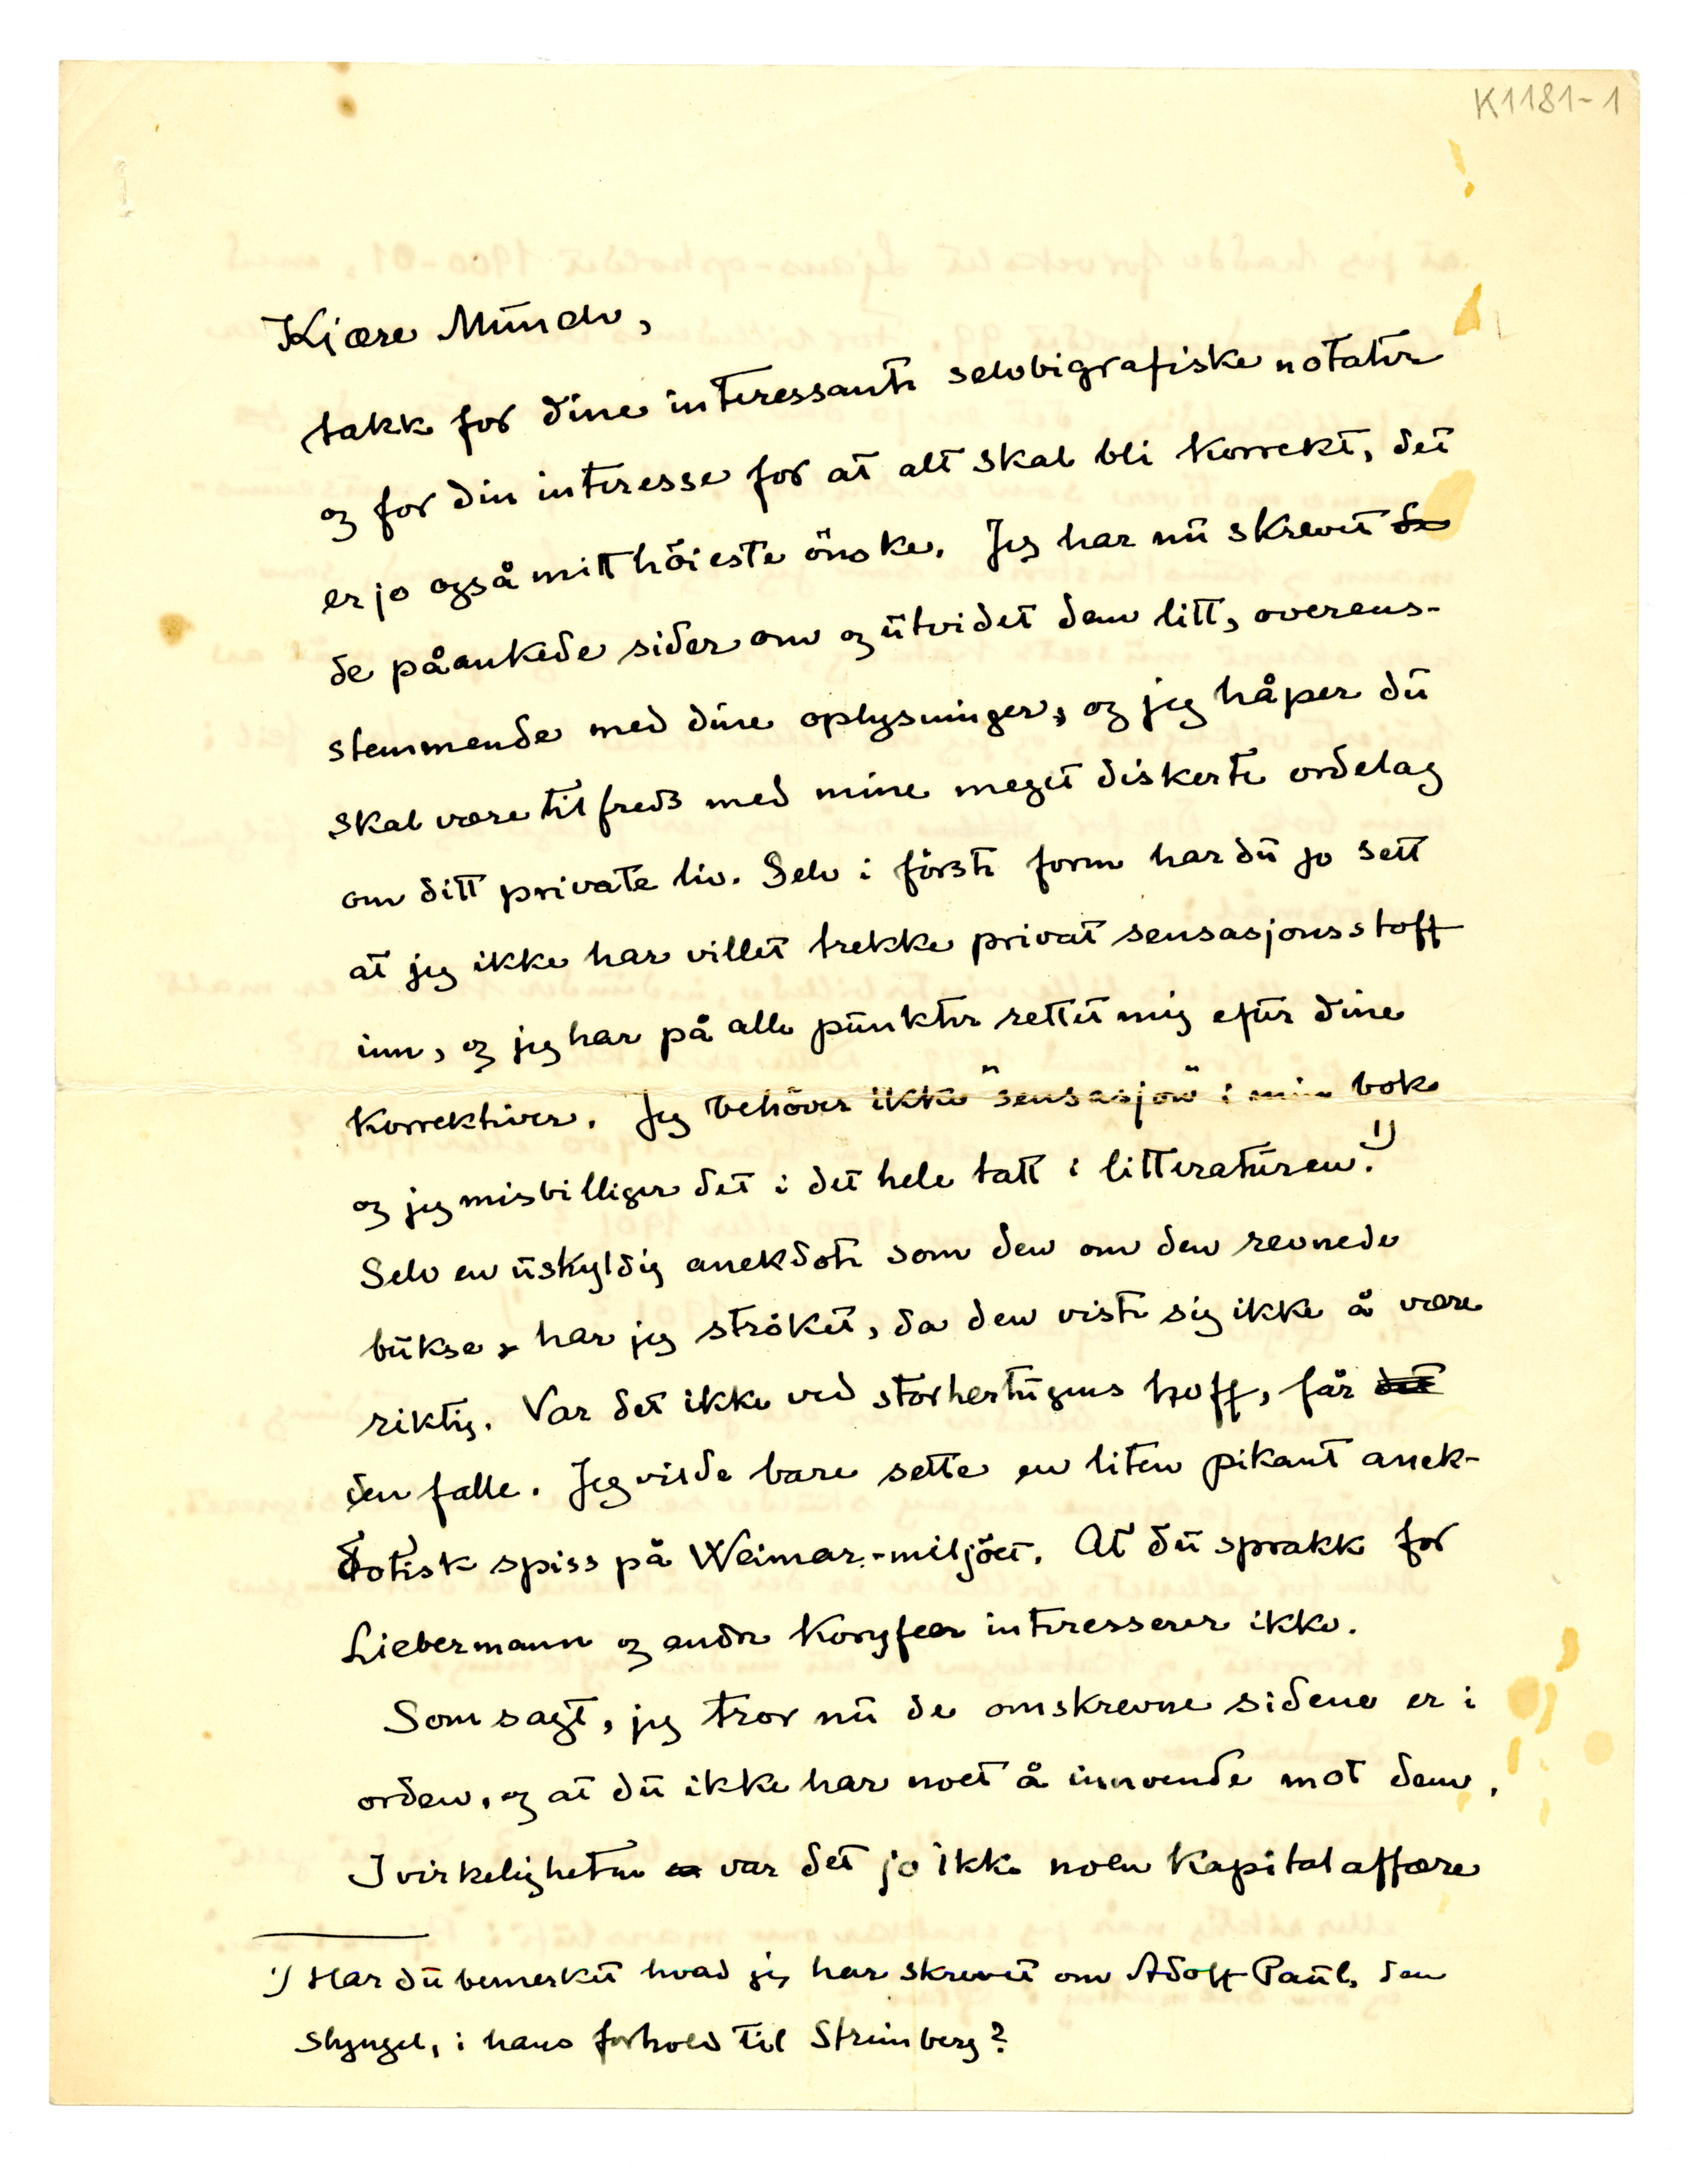 K1181-1
Kjære Munch,
takk for dine interessante selvbigrafiske notater
og for din interesse for at alt skal bli korrekt, det
er jo også mitt höieste önske. Jeg har nu skrevet de
de påankede sider om og utvidet dem litt, overens-
stemmende med dine oplysninger, og jeg håper du
skal være tilfreds med mine meget diskerte ordelag
om ditt private liv. Selv i förste form har du jo sett
at jeg ikke har villet trekke privat sensasjonsstoff
inn, og jeg har på alle punkter rettet mig efter dine
korrektiver. Jeg behöver ikke "sensasjon" i min bok
og jeg misbilliger det i det hele tatt i litteraturen.1)
Selv en uskyldig anekdote som den om den revnede
bukse, har jeg ströket, da den viste sig ikke å være
riktig. Var det ikke ved storhertugens hoff, får det
den falle. Jeg vilde bare sette en liten pikant anek-
dotisk spiss på Weimar-miljöet. At du sprakk for
Liebermann og andre koryfeer interesserer ikke.
Som sagt, jeg tror nu de omskrevne sidene er i
orden, og at du ikke har noet å innvende mot dem.
I virkeligheten var det jo ikke noen kapitalaffære
1) Har du bemerket hvad jeg har skrevet om Adolf Paul, den
slyngel, i hans forhold til Strinberg?